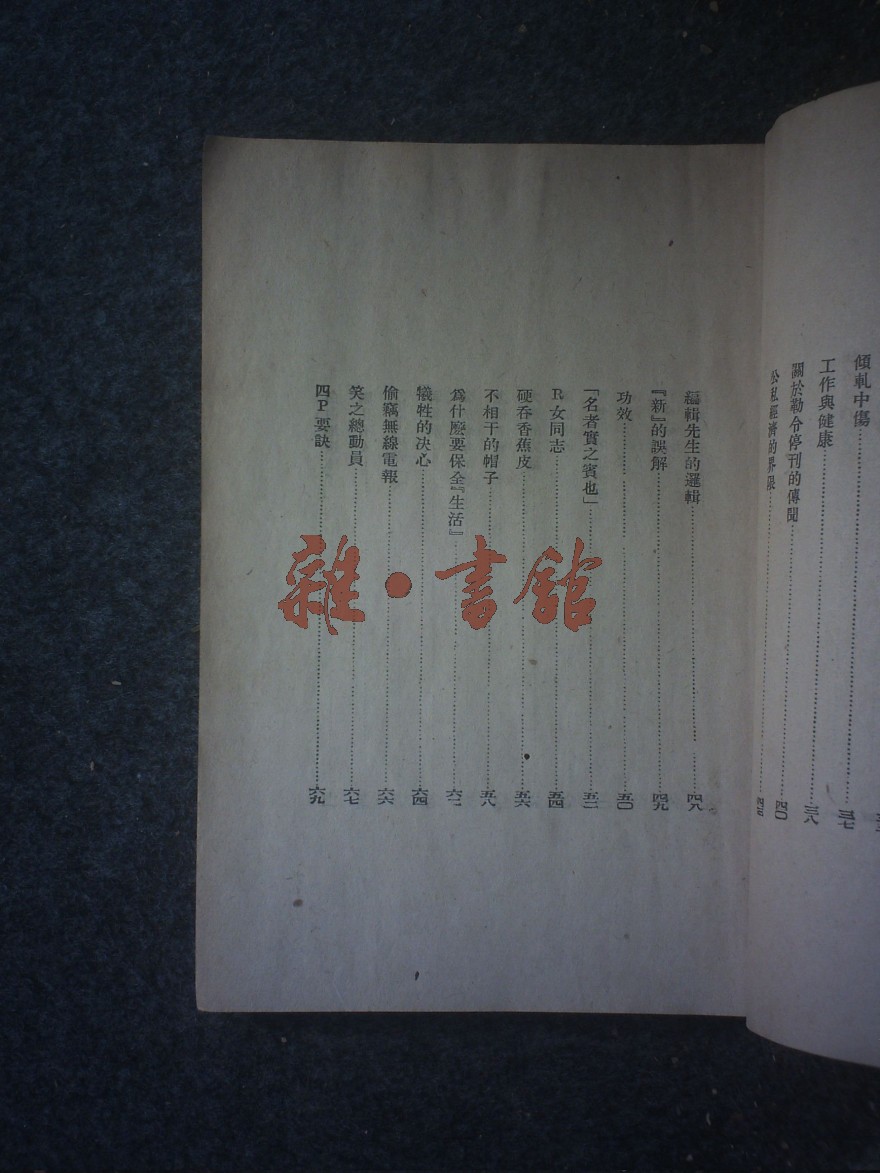 傾軋中傷 三七
工作與健康 三八
關於勒令停刊的傳聞 四〇
公私經濟的界限
編輯先生的邏輯 四八
『新』的誤解 四九
功效 五〇
「名者實之賓也」
R女同志 五四
硬吞香蕉皮 五六
不相干的帽子 五八
爲什麼要保全『生活』
犧牲的决心 六四
偷竊無線電報 六六
笑之總動員 六七
四P要訣 六九
雜·書館